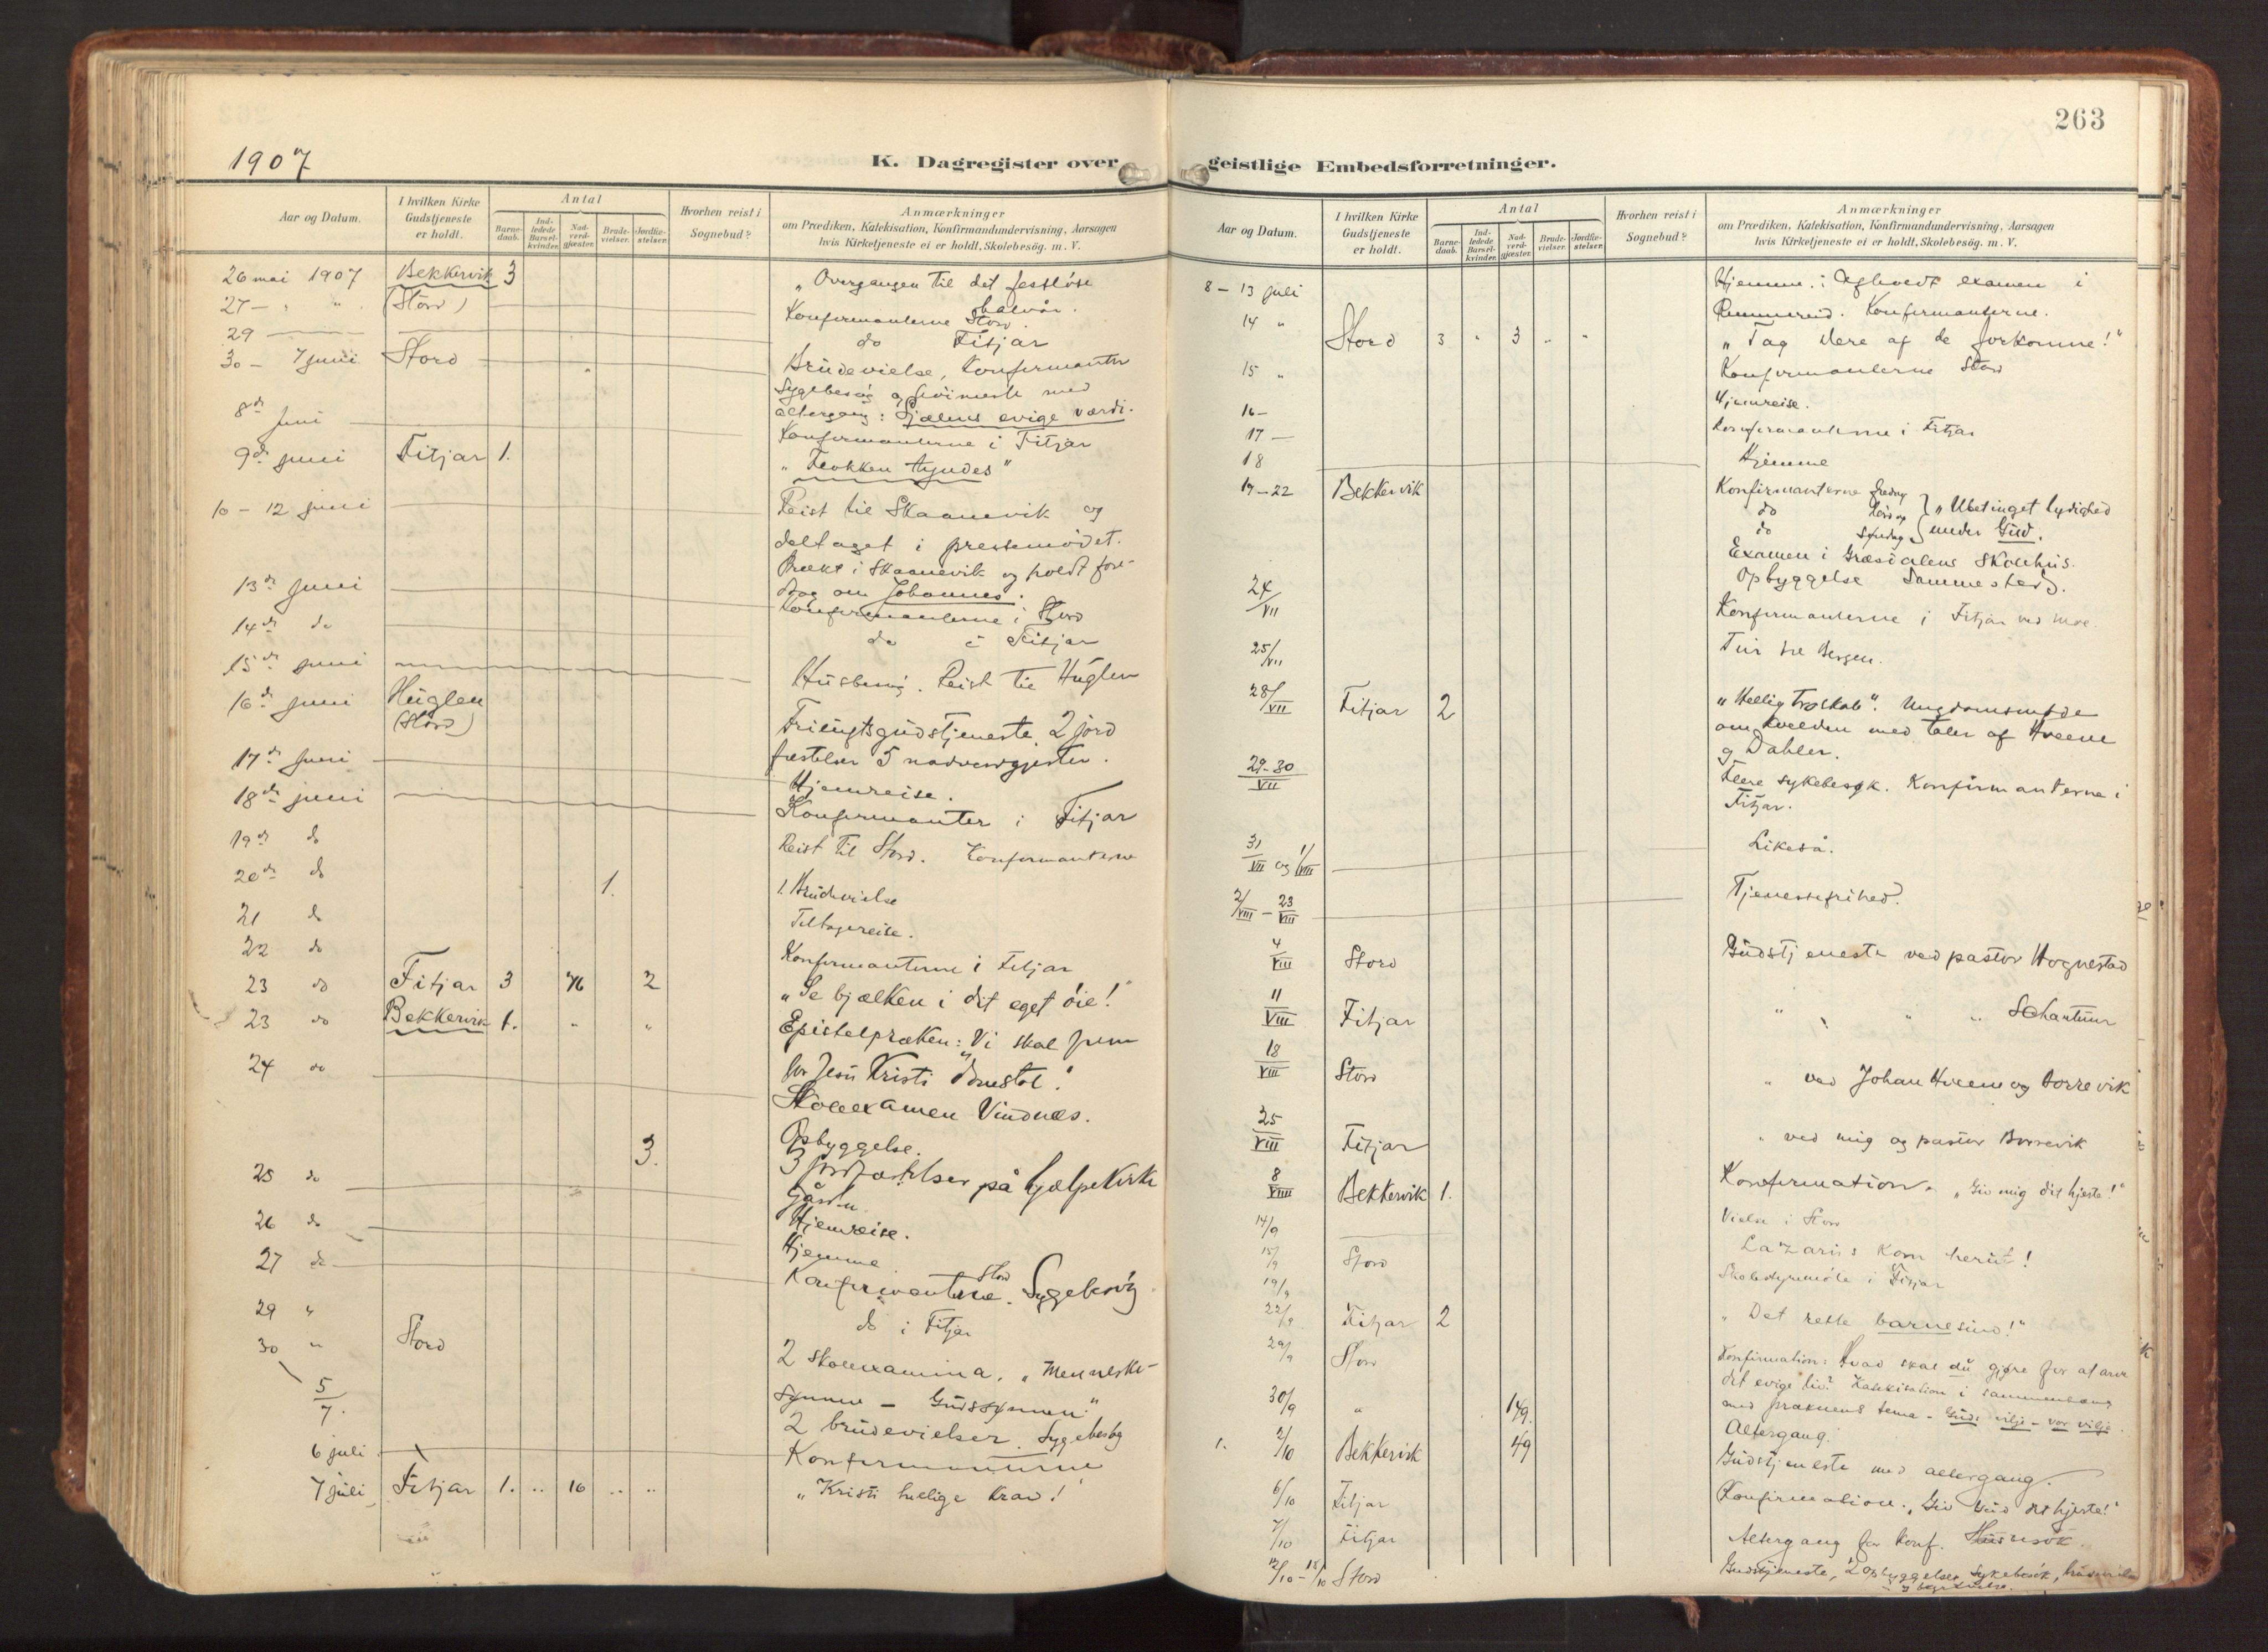 1907
K. Dagregister over
Aar og Datum.
I hvilken Kirke Gudstjeneste er holdt.
Antal
Barne-daab.
Ind-ledede Barsel-kvinder.
Nad-verd-gjæster.
Brude-vielser.
Jordfæ-stelser.
Hvorhen reist i Sognebud?
Anmærkninger
om Prædiken, Katekisation, Konfirmandundervisning, Aarsagen
hvis Kirketjeneste ei er holdt, Skolebesög. m. V.
26 mai 1907 Bekkervik 3 „Overgangen til det festløse
halvår.
27 – " " (Stord) Konfirmanterne Stord.
29 do Fitjar
30 – 7 juni Stord Brüdevielse, Konfirmanter
Sygebesög og med
altergang: Sjælens evige værdi.
8de juni Konfirmanterne i Fitjar
9de juni Fitjar 1. „Flokken tyndes"
10 – 12 juni Reist til Skaanevik og
deltaget i prestemödet.
Præket i Skaanevik og holdt fore-
drag om Johannes.
13de juni Konfirmanterne i Stord
14de do do i Fitjar
15de juni Husbesög. Reist til Hüglen
16de juni Hüglen (Stord) Friluftsgüdstjeneste. 2 jord
fæstelser 5 nadverdgjester.
17de juni Hjemreise.
18de juni Konfirmanter i Fitjar
19de do Reist til Stord. Konfirmanterne
20de do 1. 1. Brüdevielse
21 do Tilbagereise.
22 do Konfirmanterne i Fitjar
23 do Fitjar 3 46 2 „Se bjælken i dit eget öie!"
23 do Bekkervik 1. " " Epistelpræken: Vi skal frem
for Jesü Kristi domstol!
24 do Skoleexamen Vindnæs.
Opbyggelse.
3. 3 jordfæstelser på hjælpekirke
gården.
25 do Hjemreise.
26 do Hjemme
27 do Konfirmanterne Stord. Sygebesög
29 " do i Fitjar
30 " Stord 2 skoleexamina. „Menneske-
5/7. synner – Güdssynner"
2 brüdevielser. Sygebesög
6 juli Konfirmanterne
7 juli Fitjar 1. .. 16 .. .. „Kristi hellige krav!
263
geistlige Embedsforretninger.
Aar og Datum.
I hvilken Kirke Gudstjeneste er holdt.
Antal
Barne-daab.
Ind-ledede Barsel-kvinder.
Nad-verd-gjæster.
Brude-vielser.
Jordfæ-stelser.
Hvorhen reist i Sognebud?
Anmærkninger
om Prædiken, Katekisation, Konfirmandundervisning, Aarsagen
hvis Kirketjeneste ei er holdt, Skolebesög. m. V.
8 – 13 juli Hjemme. Afholdt examen i
Rimmereid. Konfirmanterne.
14 " Stord 3 " 3 .. " „Tag dere af de forkomne!"
15 " Konfirmanterne Stord
16 – Hjemreise.
17 – Konfirmanterne i Fitjar
18 Hjemme
19 – 22 Bekkervik Konfirmanterne fredag
do lördag „Ubetinget lydighed
do Søndag under Güd.
Examen i Græsdalens Skolehüs.
Opbyggelse Sammesteds.
24/VII Konfirmanterne i Fitjar ved Moe.
25/VII Tür til Bergen.
28/VII Fitjar 2 „Hellig troskab". Ungdomsmøde
om kvelden med taler af Hveem
og Dahler.
29-30/VII Flere sykebesøk. Konfirmanterne i
Fitjar.
31/VII og 1/VIII Likeså.
2/VIII – 23/VIII Tjenestefrihed.
4/VIII Stord Güdstjeneste ved pastor Hognestad
11/VIII Fitjar " " " Schantun
18/VIII Stord " ved Johan Hveem og Borrevik
25/VIII Fitjar " ved mig og pastor Borrevik
8/VIIII Bekkervik 1. Konfirmation. „Giv mig dit hjerte!"
14/9 Vielse i Stord
15/9 Stord Lazarüs kom herüt!
19/9 Skolestyremöte i Fitjar
22/9 Fitjar 2 „Det rette barnesind!"
29/9 Stord Konfirmation: Hvad skal dü gjøre for at arve
det evige liv? Katekisation i sammenhæng
med prækenens tema – Güds vilje – vor vilje.
30/9 " 149. Altergang.
1. 2/10 Bekkervik 49 Güdstjeneste med altergang.
6/10 Fitjar Konfirmation. „Giv Güd dit hjerte!"
7/10 Fitjar Altergang for Konf. Hüsbesök.
12/10 – 18/10 Stord Güdstjeneste, 2 opbyggelser, Sykebesök,